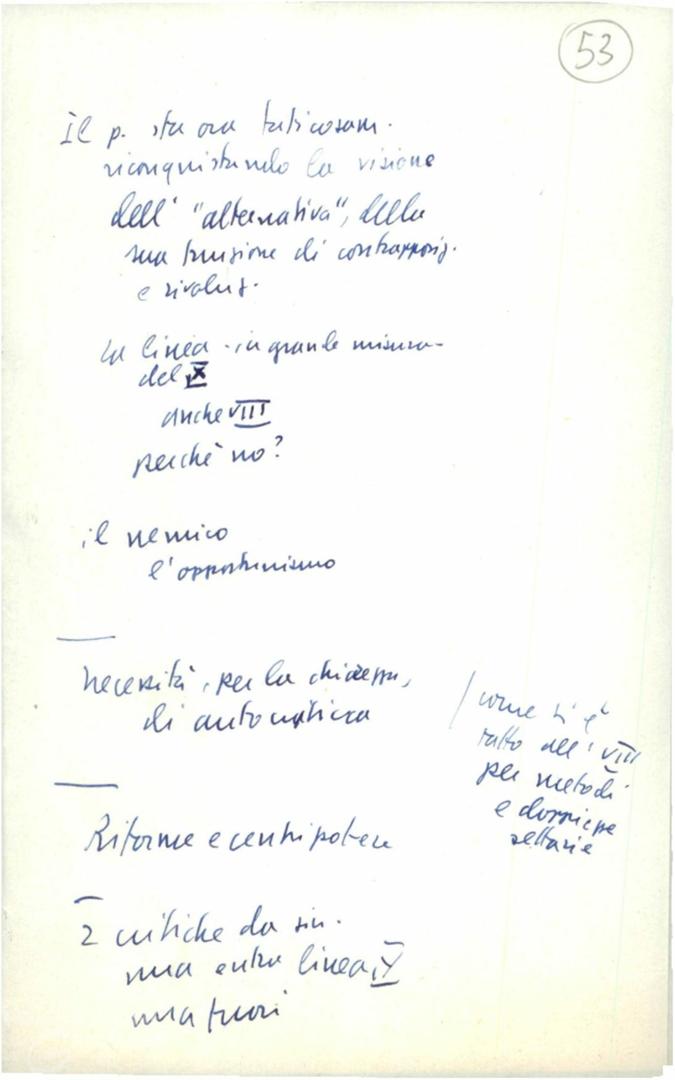 53
Il p. sta ora faticosam.
riconquistando la visione
dell' "alternativa", della
sua funzione di contrapposiz.
e rivoluz.
la linea - in grande misura -
del X
anche VIII
perchè no?
il nemico
l'opportunismo
necessità, per la chiarezza,
di autocritica
/ come si è
fatto all' VIII
per metodi
e doppiezze
settarie
Riforme e centri potere
2 critiche da sin.
una entro linea
una fuori